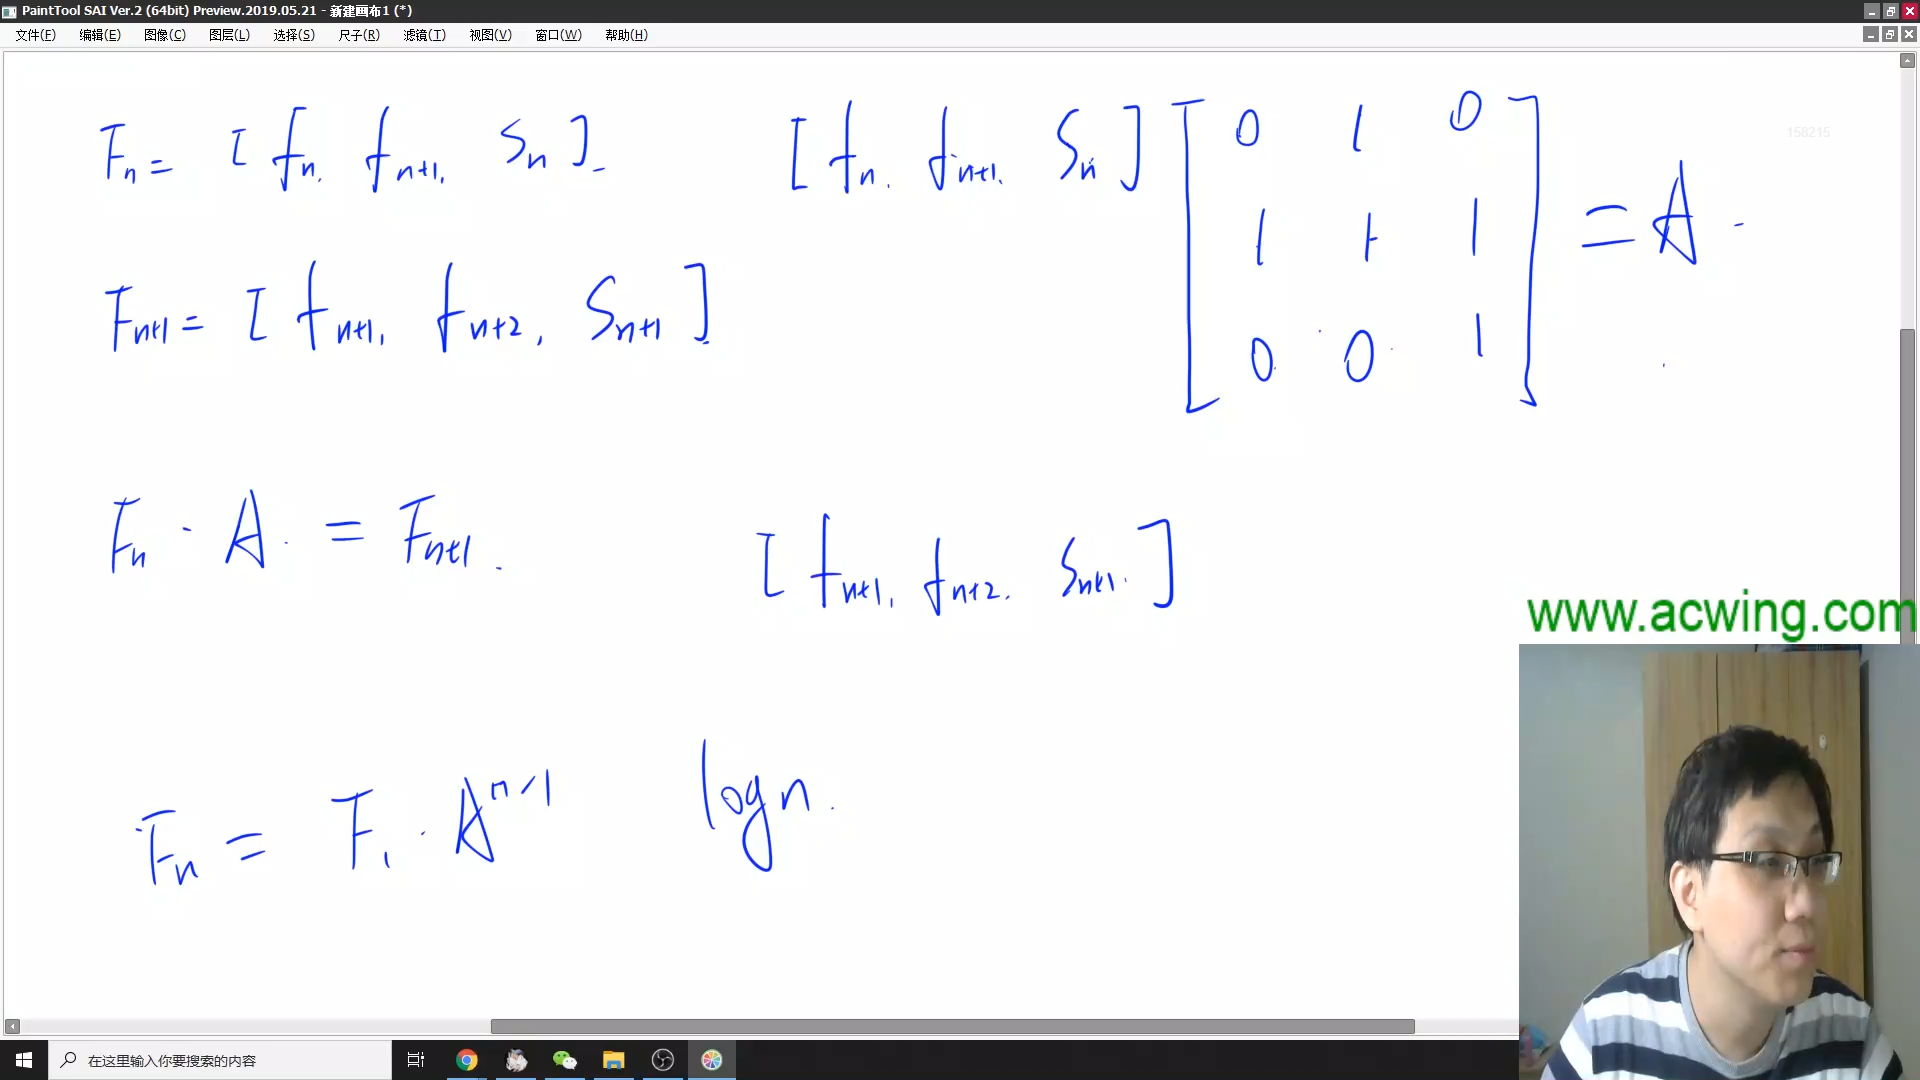 PaintTool SAI Ver.2 (64bit) Preview.2019.05.21 - 新建画布1 (*)
文件(F) 编辑(E) 图像(C) 图层(L) 选择(S) 尺子(R) 滤镜(T) 视图(V) 窗口(W) 帮助(H)
158215
Fn = [fn, fn+1, Sn]
[fn, fn+1, Sn] [0 1 0
1 1 1
0 0 1] = A
Fn+1 = [fn+1, fn+2, Sn+1]
Fn · A = Fn+1
[fn+1, fn+2, Sn+1]
www.acwing.com
Fn = F1 · A^n-1 logn
在这里输入你要搜索的内容